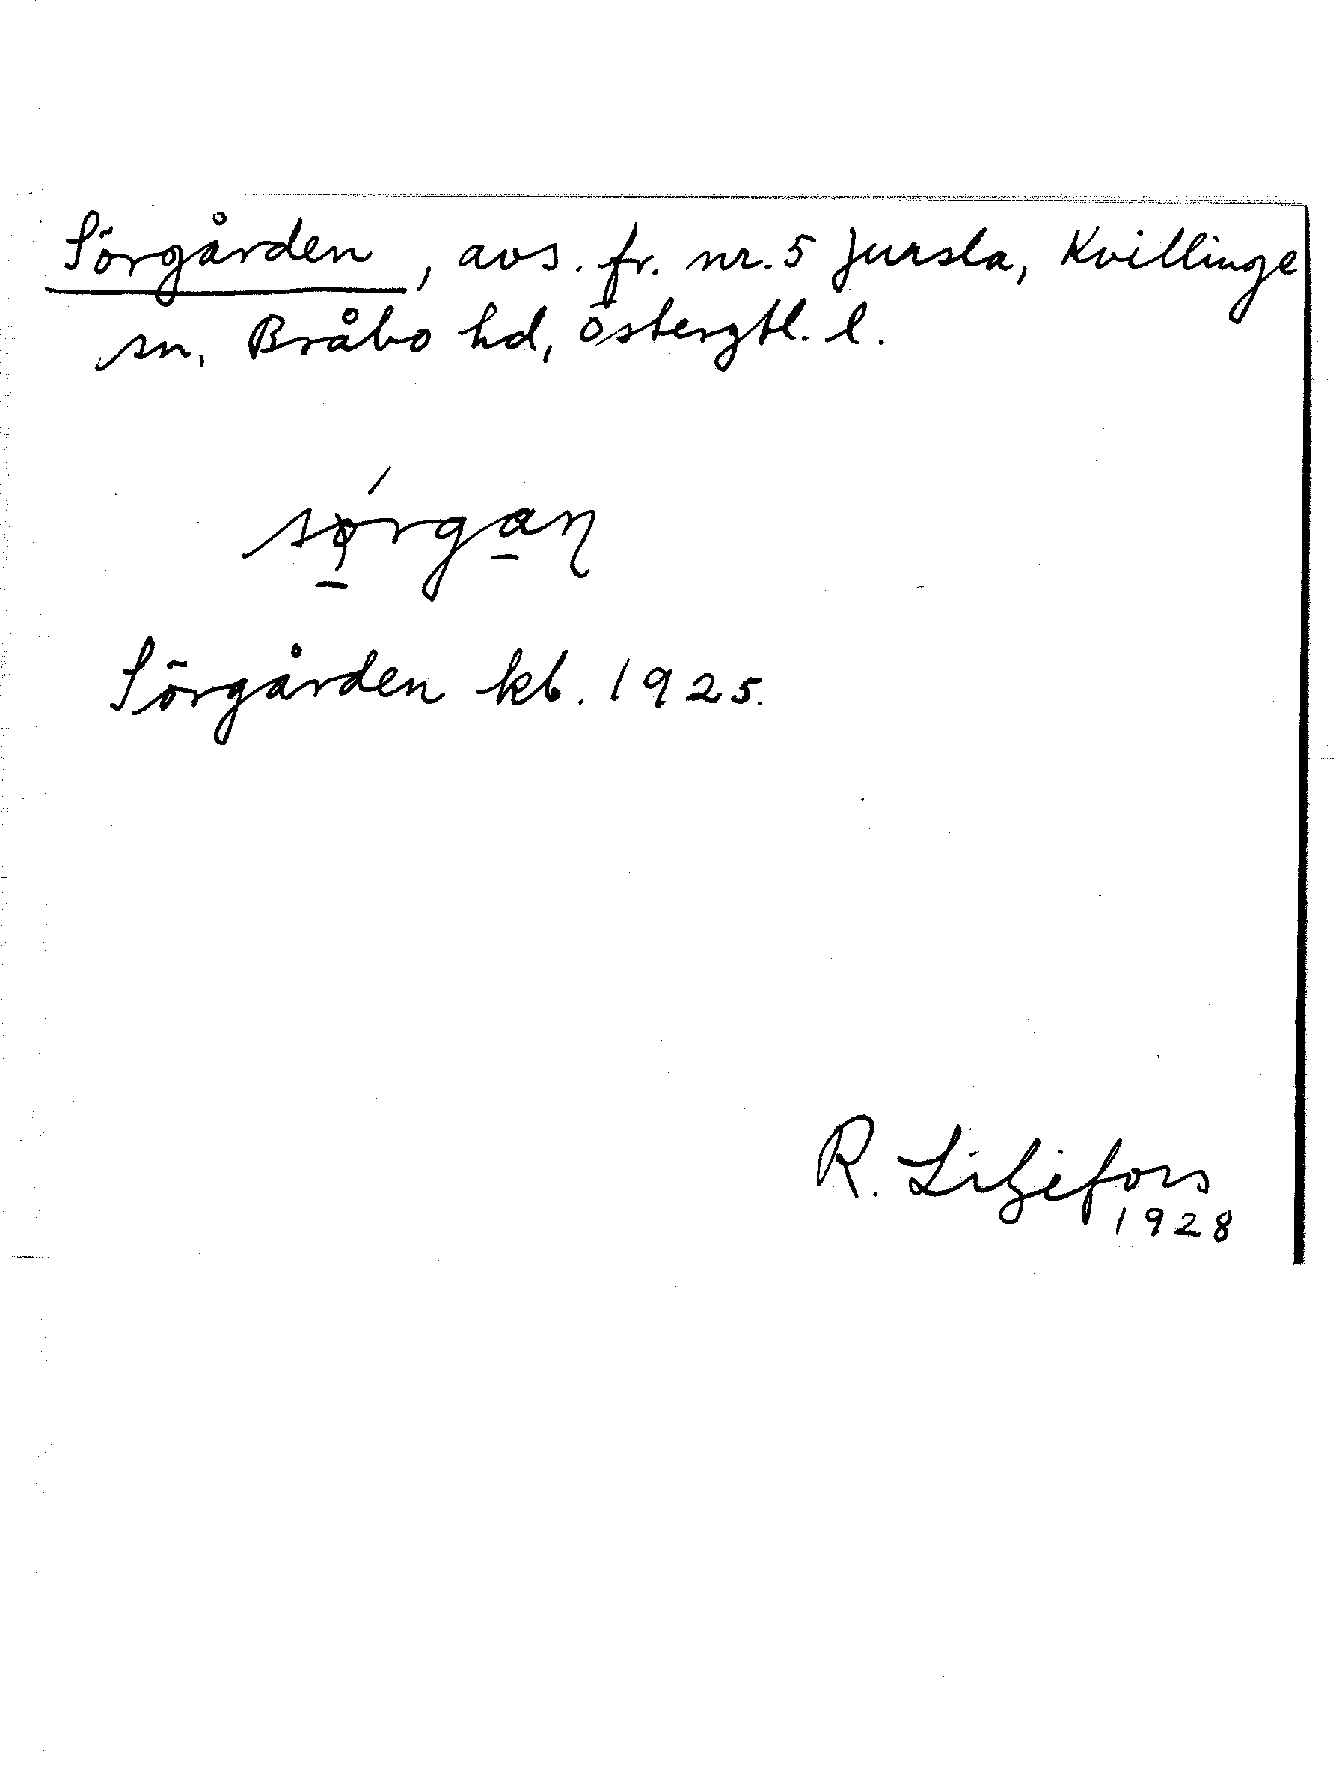 Sörgården, avs. fr. nr. 5 Jursla, Kvillinge
sn, Bråbo hd, Östergtl. l.
sǿ̱rga̱ɳ
Sörgården kb. 1925.
R. Liljefors
1928